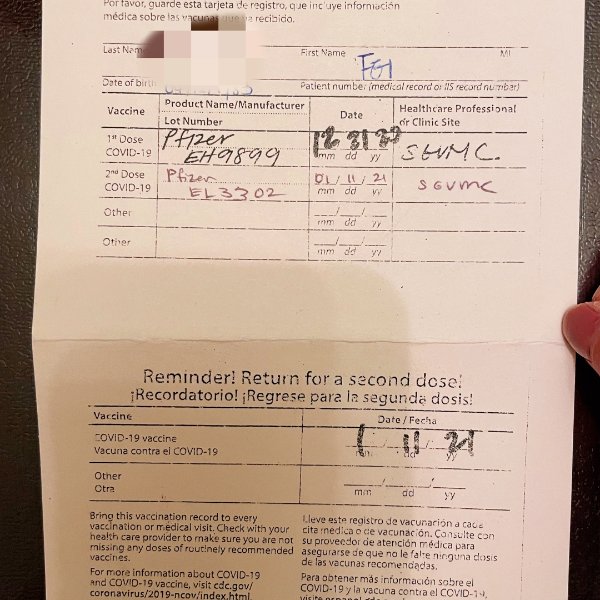 Por favor, guarde esta tarjeta de registro, que incluye información
médica sobre las vacunas que ha recibido.
Last Name First Name MI
Date of birth Patient number (medical record or IIS record number)
Vaccine Product Name/Manufacturer Date Healthcare Professional
Lot Number or Clinic Site
1st Dose Pfizer
COVID-19 EH9899 mm dd yy SGVMC.
2nd Dose Pfizer 01/11/21 SGVMC
COVID-19 EL3302 mm dd yy
Other
mm dd yy
Other
mm dd yy
Reminder! Return for a second dose!
¡Recordatorio! ¡Regrese para la segunda dosis!
Vaccine Date / Fecha
COVID-19 vaccine 1 11 21
Vacuna contra el COVID-19 mm dd yy
Other
Otra mm dd yy
Bring this vaccination record to every
vaccination or medical visit. Check with your
health care provider to make sure you are not
missing any doses of routinely recommended
vaccines.
For more information about COVID-19
and COVID-19 vaccine, visit cdc.gov/
coronavirus/2019-ncov/index.html
Lleve este registro de vacunación a cada
cita médica o de vacunación. Consulte con
su proveedor de atención médica para
asegurarse de que no le falte ninguna dosis
de las vacunas recomendadas.
Para obtener más información sobre el
COVID-19 y la vacuna contra el COVID-19,
visite